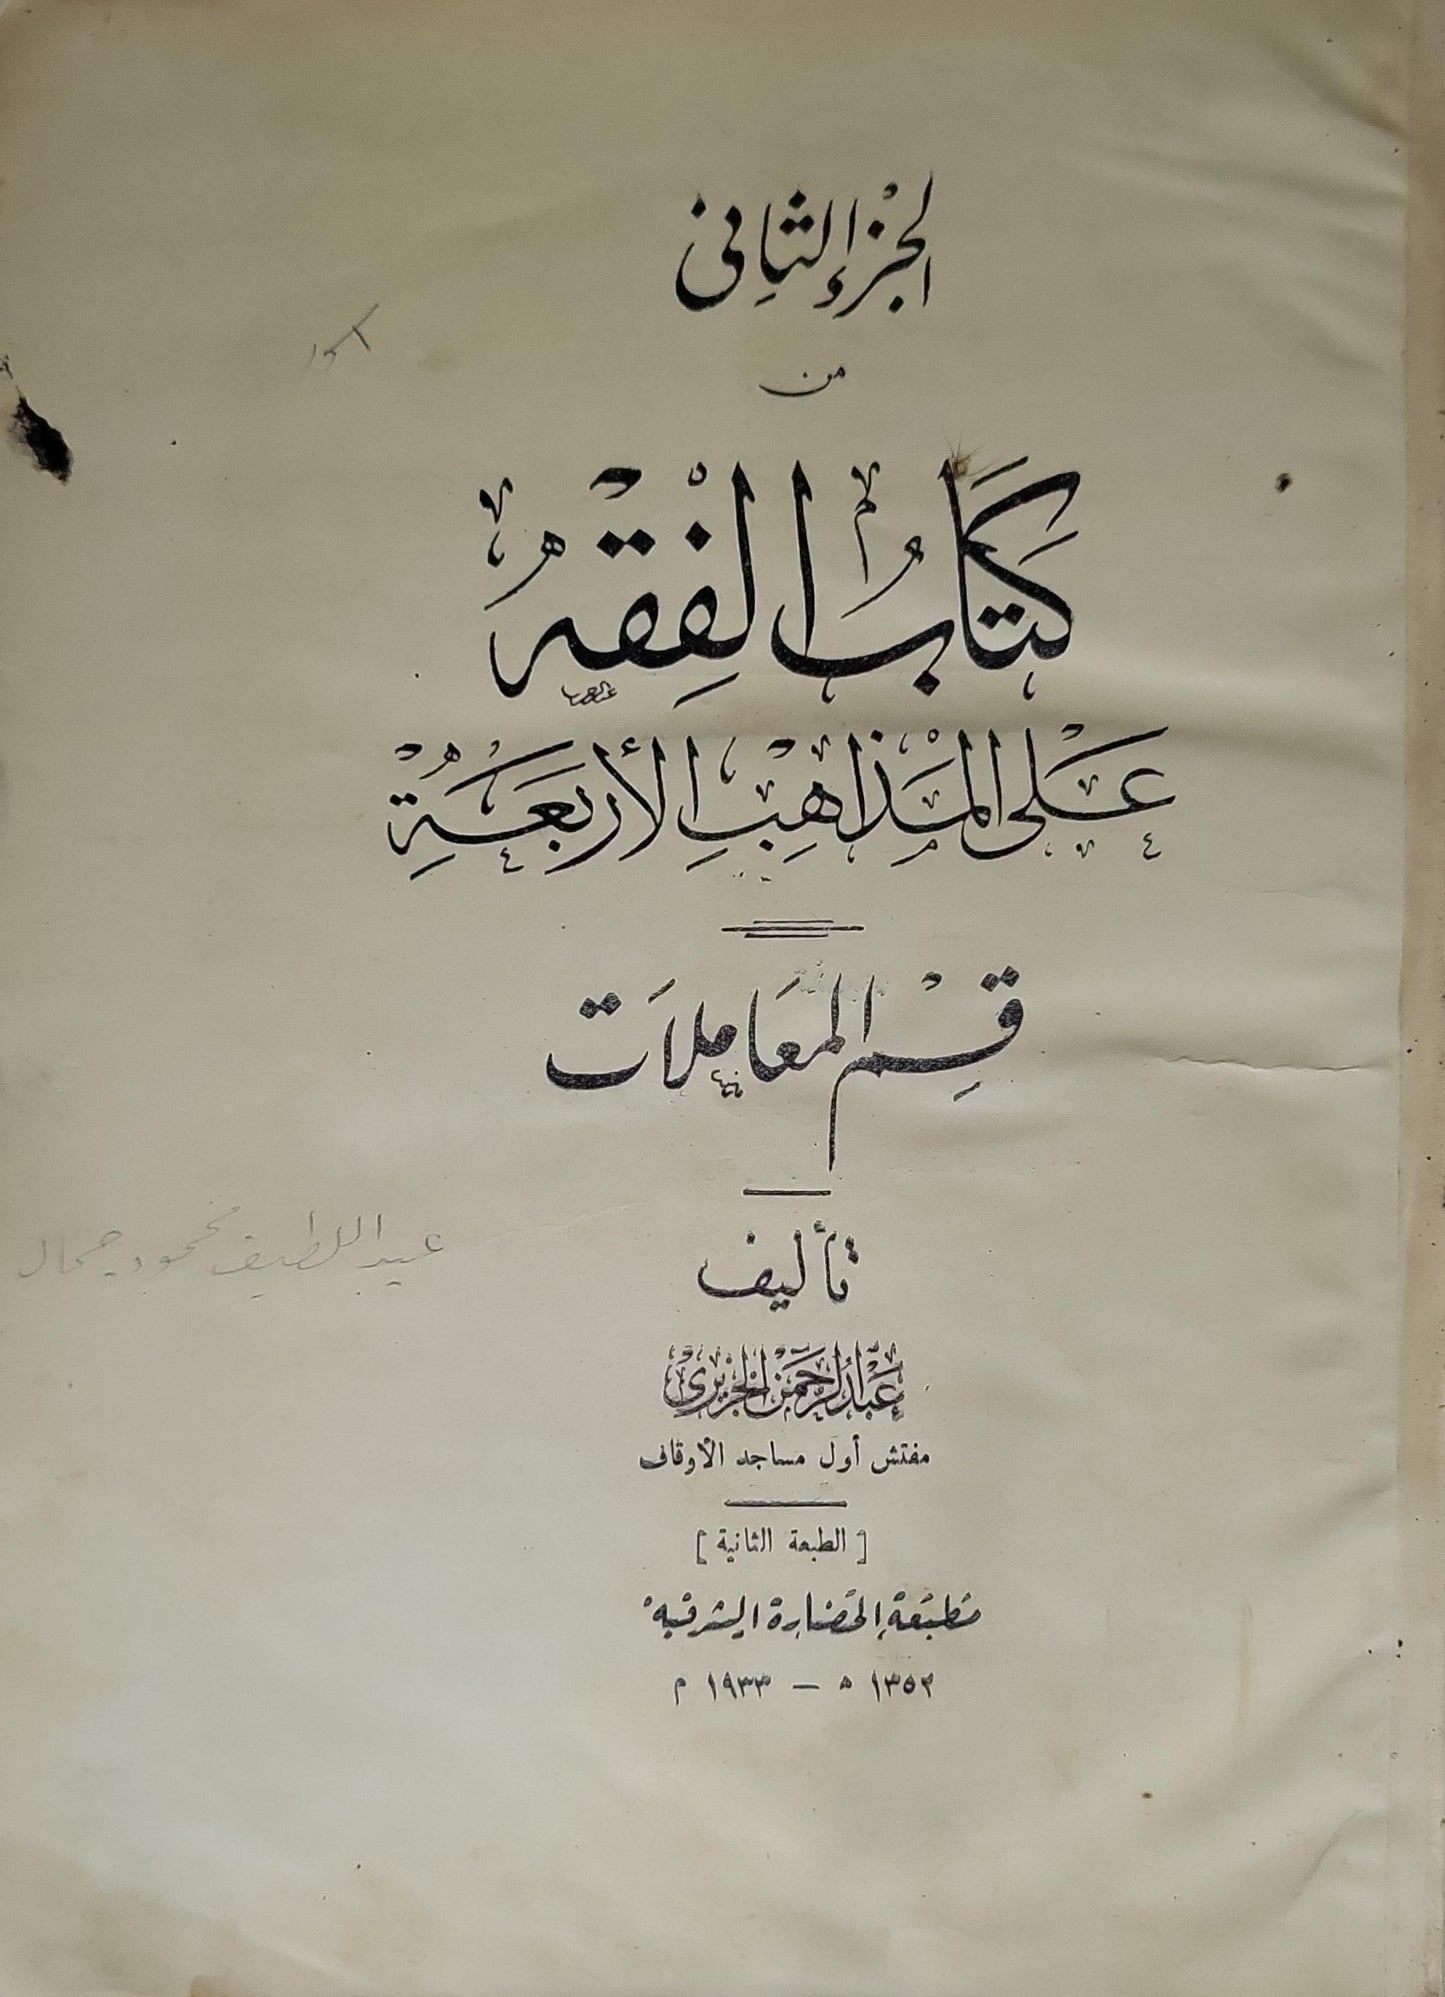 الجزء الثانى
من
كتاب الفقه
على المذاهب الأربعة
قسم المعاملات
تأليف
عبد الرحمن الجزيرى
عبد اللطيف محمود جمال
مفتش أول مساجد الأوقاف
[ الطبعة الثانية ]
مطبعة الحضارة الشرقية
١٣٥٢ ه — ١٩٣٣ م